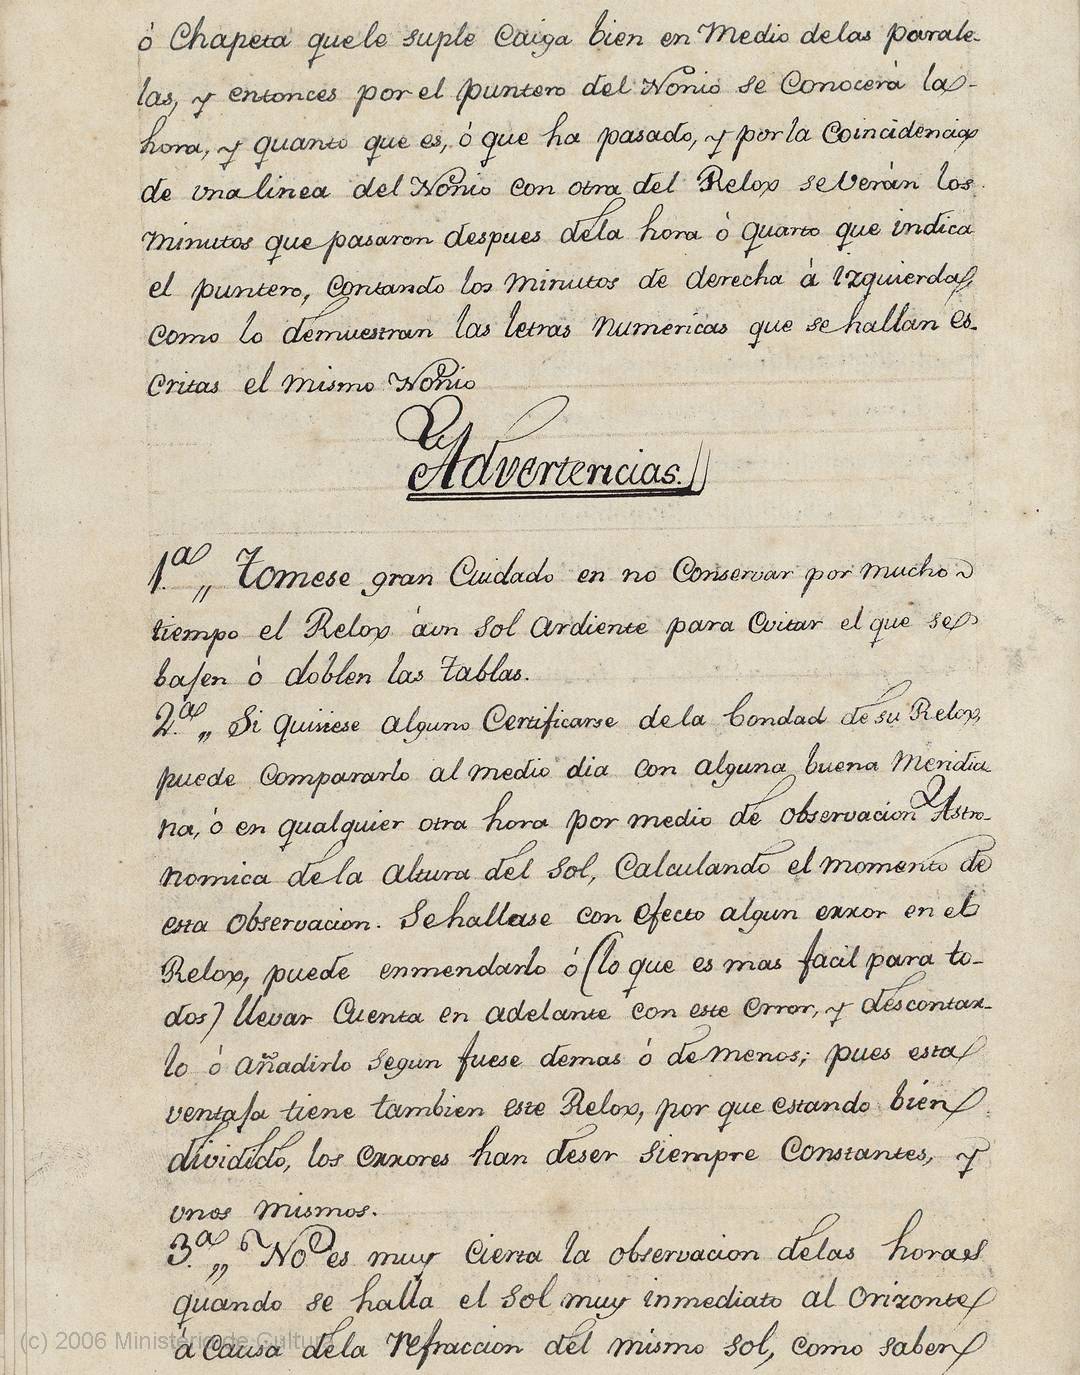 ó Chapeta quele suple Caiga bien en Medio delas parale-
las, y entonces por el puntero del Nonio se Conocerá la-
hora, y quanto que es, ó que ha pasado, y por la Coincidencia
de vna linea del Nonio con otra del Relox se Verán los
Minutos que pasaron despues dela hora ó quarto que indica
el puntero, Contando los Minutos de derecha á Izquierda,
Como lo demuestran las letras Numericas que se hallan es-
Critas el Mismo Nonio
Advertencias.
1.ª „ Tomese gran Cuidado en no Conservar por mucho
tiempo el Relox áun Sol ardiente para Evitar el que se
bajen ó doblen las Tablas.
2.ª „ Si quisiese alguno Certificarse dela bondad de su Relox,
puede Compararlo al Medio dia con alguna buena Meridia-
na, ó en qualquier otra hora por medio de observacion Astro-
nomica dela altura del Sol, Calculando el momento de
esta Observacion. Sehallase con efecto algun error en el
Relox, puede enmendarlo ó (lo que es mas facil para to-
dos) llevar Cuenta en adelante con este Error, y descontar-
lo ó añadirlo Segun fuese demas ó de menos; pues esta
ventaja tiene tambien este Relox, por que estando bien
dividido, los Errores han deser Siempre Constantes, y
vnos Mismos.
3.ª „ No es muy Cierta la observacion delas horas
quando se halla el Sol muy inmediato al Orizonte
á Causa dela refraccion del mismo Sol, como saben
(c) 2006 Ministerio de Cultura